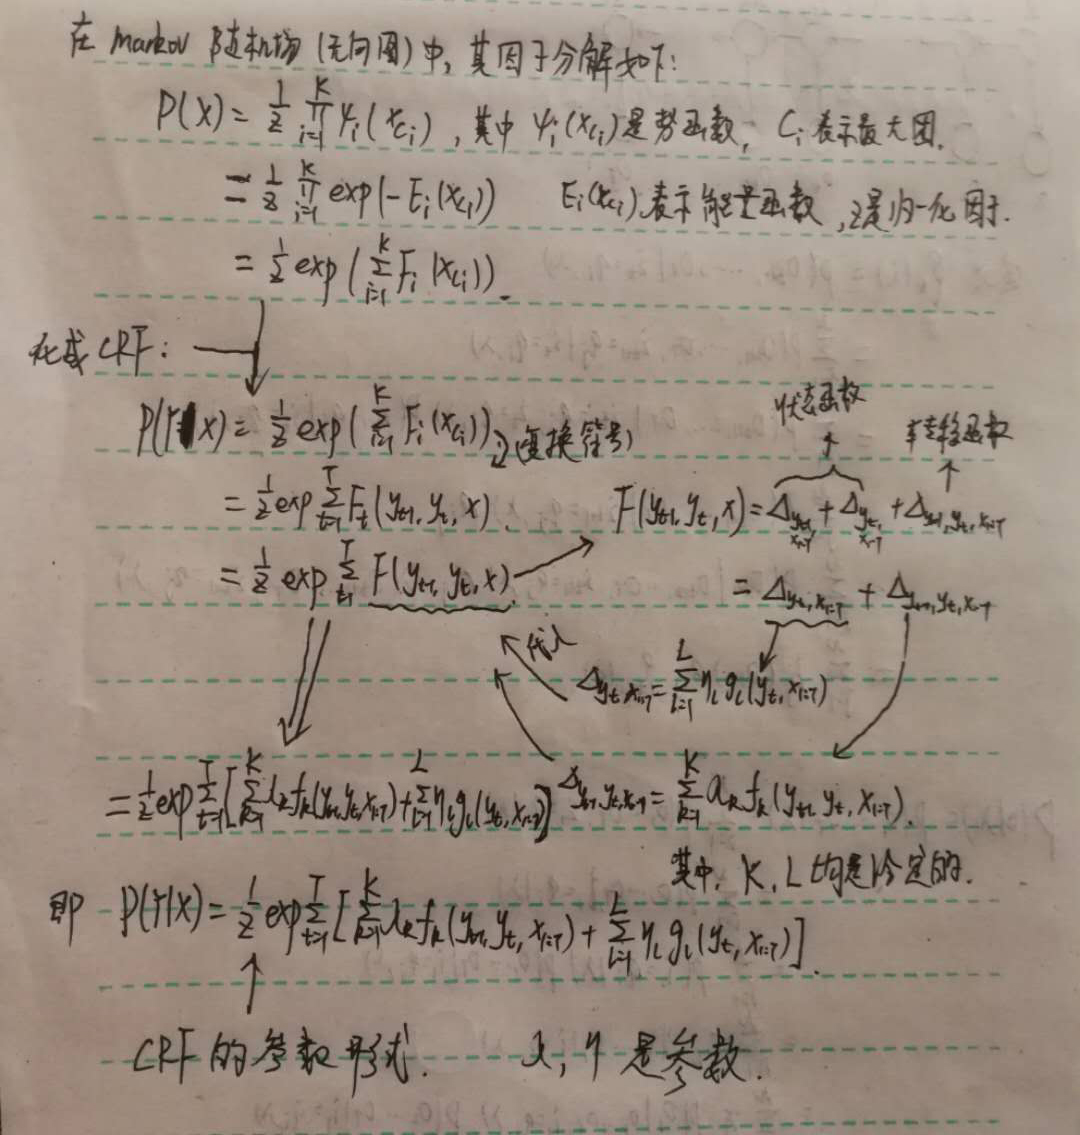 在 Markov 随机场(无向图)中,其因子分解如下:
P(X) = 1/Z ∏_{i=1}^{K} ψ_i(x_{C_i}), 其中 ψ_i(x_{C_i})是势函数, C_i 表示最大团.
= 1/Z ∏_{i=1}^{K} exp(-E_i(x_{C_i})) E_i(x_{C_i})表示能量函数,Z是归一化因子.
= 1/Z exp(∑_{i=1}^{K} F_i(x_{C_i})).
CRF:
状态函数
转移函数
P(Y|X) = 1/Z exp(∑_{i=1}^{K} F_i(x_{C_i})) (变换符号)
= 1/Z exp ∑_{t=1}^{T} F_t(y_{t-1}, y_t, x). F(y_{t-1}, y_t, x) = Δ_{y_{t-1}, x_{1:T}} + Δ_{y_t, x_{1:T}} + Δ_{y_{t-1}, y_t, x_{1:T}}
= 1/Z exp ∑_{t=1}^{T} F(y_{t-1}, y_t, x). = Δ_{y_t, x_{1:T}} + Δ_{y_{t-1}, y_t, x_{1:T}}
代入
Δ_{y_t, x_{1:T}} = ∑_{l=1}^{L} η_l g_l(y_t, x_{1:T})
= 1/Z exp ∑_{t=1}^{T} [∑_{k=1}^{K} λ_k f_k(y_{t-1}, y_t, x_{1:T}) + ∑_{l=1}^{L} η_l g_l(y_t, x_{1:T})] Δ_{y_{t-1}, y_t, x_{1:T}} = ∑_{k=1}^{K} λ_k f_k(y_{t-1}, y_t, x_{1:T}).
其中, K, L 均是给定的.
即 P(Y|X) = 1/Z exp ∑_{t=1}^{T} [∑_{k=1}^{K} λ_k f_k(y_{t-1}, y_t, x_{1:T}) + ∑_{l=1}^{L} η_l g_l(y_t, x_{1:T})].
CRF 的参数形式. λ, η 是参数.